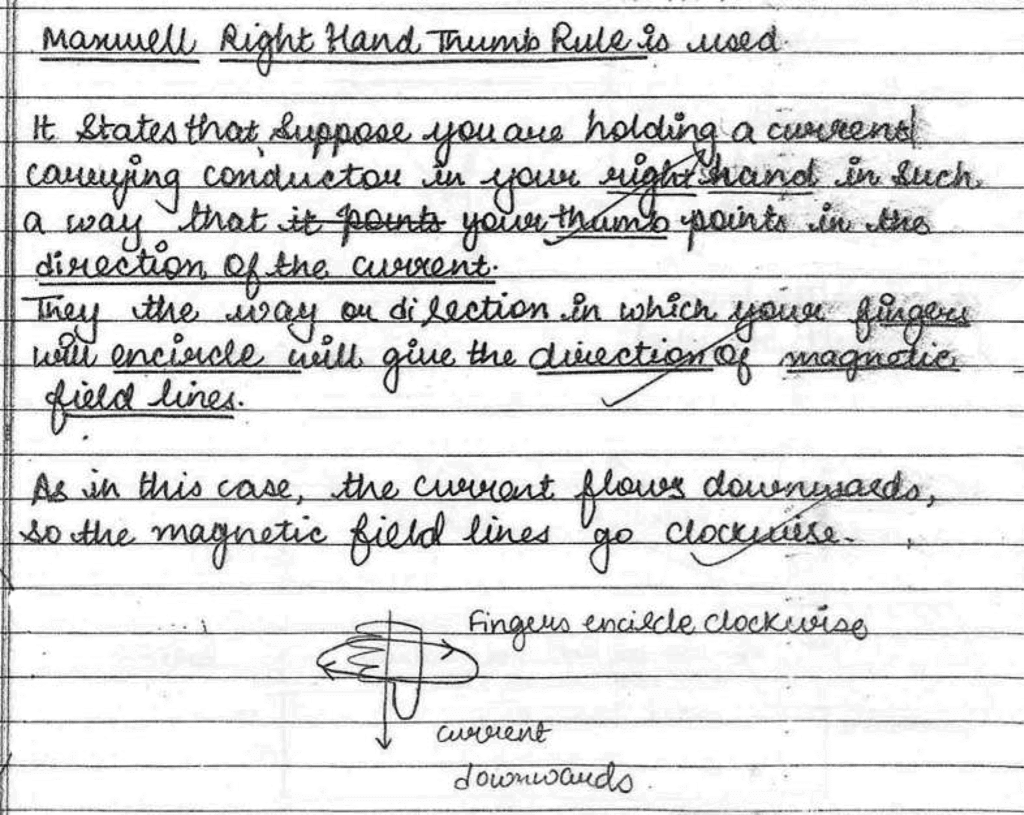 Maxwell Right Hand Thumb Rule is used.
It States that, Suppose you are holding a current
carrying conductor in your right hand in Such
a way that it points your thumb points in the
direction of the current.
They the way or direction in which your fingers
will encircle will give the direction of magnetic
field lines.
As in this case, the current flows downwards,
so the magnetic field lines go clockwise.
Fingers encircle clockwise
current
downwards.